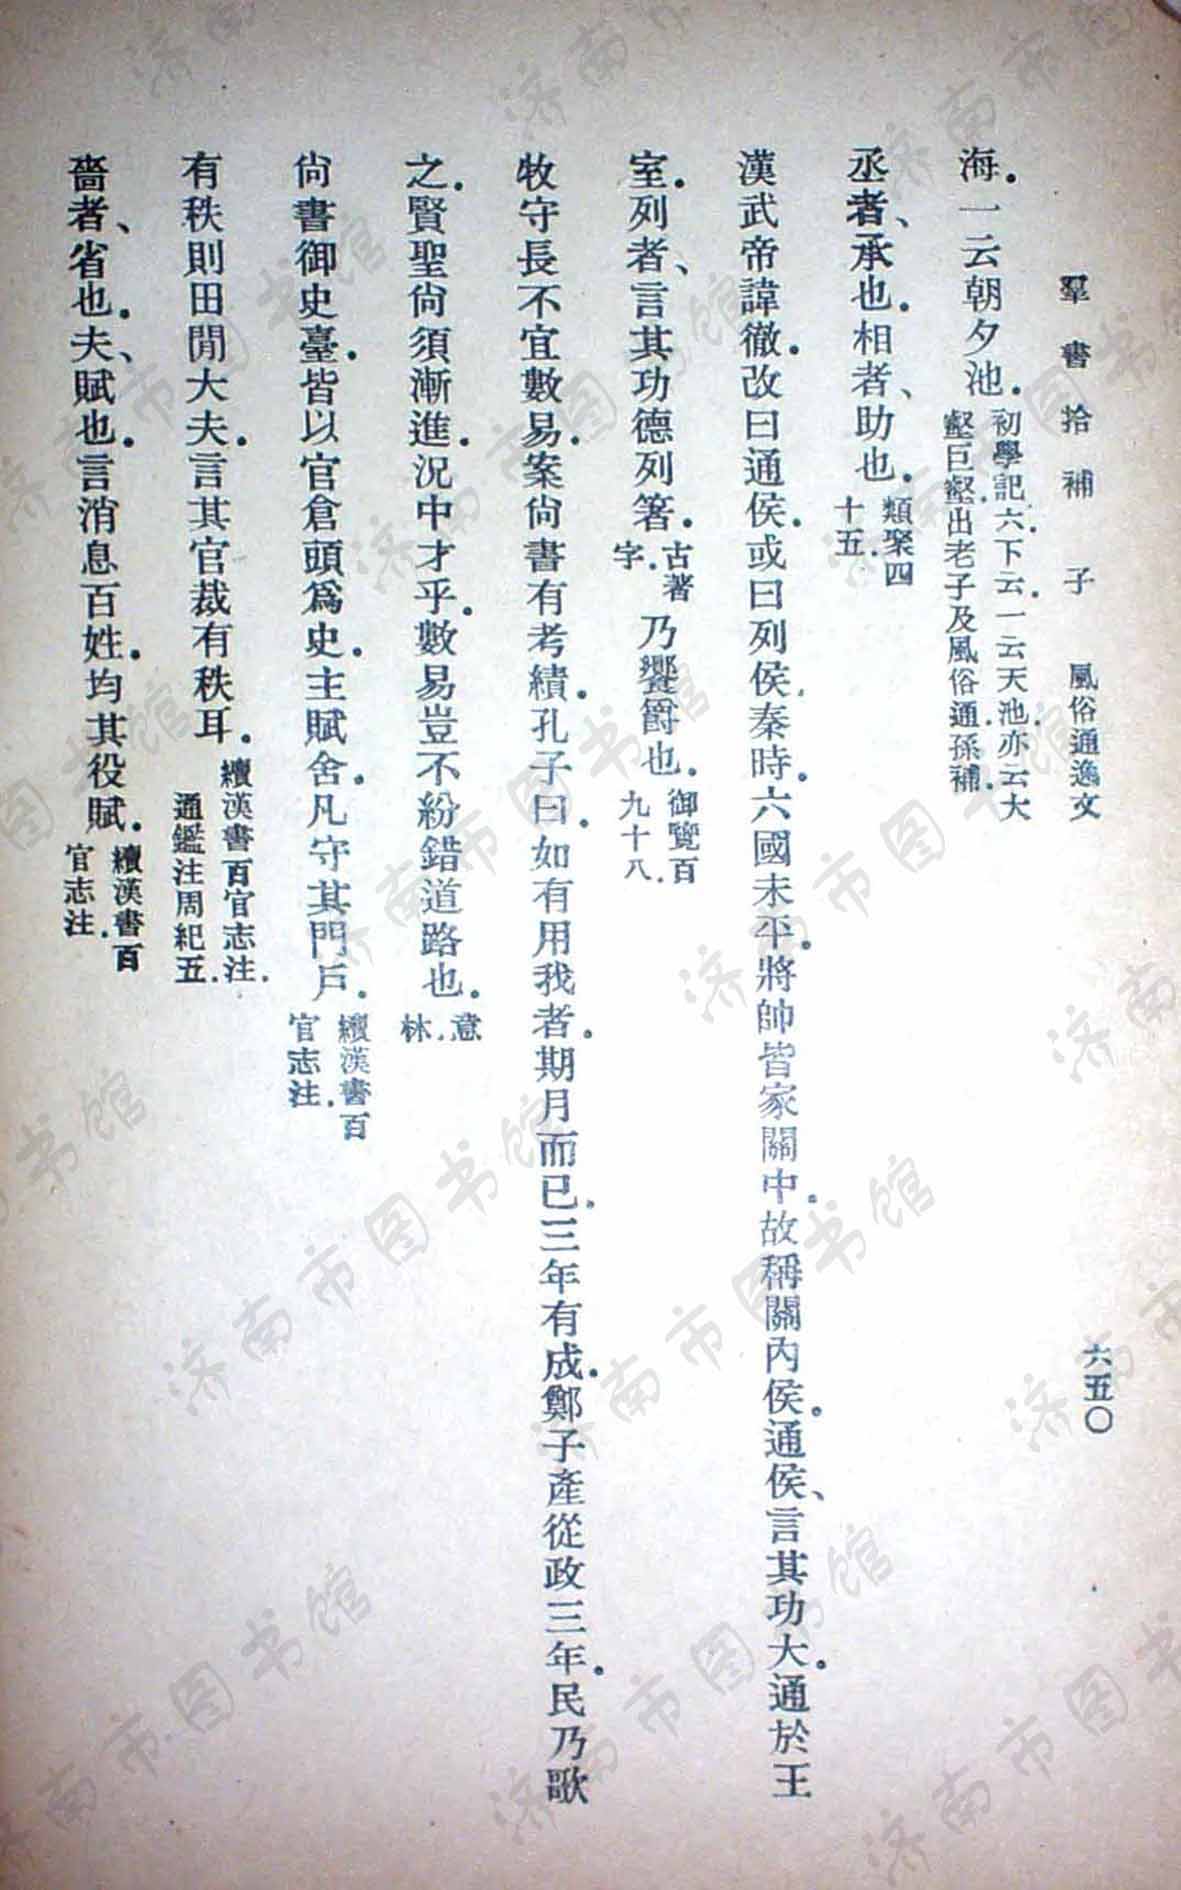 羣書拾補　子　風俗通逸文　六五〇
海．一云朝夕池．初學記六．下云．一云天池．亦云大壑巨壑．出老子及風俗通．孫補．
丞者、承也．相者、助也．類聚四十五．
漢武帝諱徹．改曰通侯．或曰列侯．秦時．六國未平．將帥皆家關中．故稱關內侯．通侯、言其功大．通於王
室．列者、言其功德列箸．古著字．乃饗爵也．御覽百九十八．
牧守長不宜數易．案尙書有考績．孔子曰．如有用我者．期月而已．三年有成．鄭子產從政三年．民乃歌
之．賢聖尙須漸進．況中才乎．數易豈不紛錯道路也．意林．
尙書御史臺．皆以官倉頭爲史．主賦舍．凡守其門戶．續漢書百官志注．
有秩則田閒大夫．言其官裁有秩耳．續漢書百官志注．通鑑注周紀五．
嗇者、省也．夫、賦也．言消息百姓．均其役賦．續漢書百官志注．
济南市图书馆